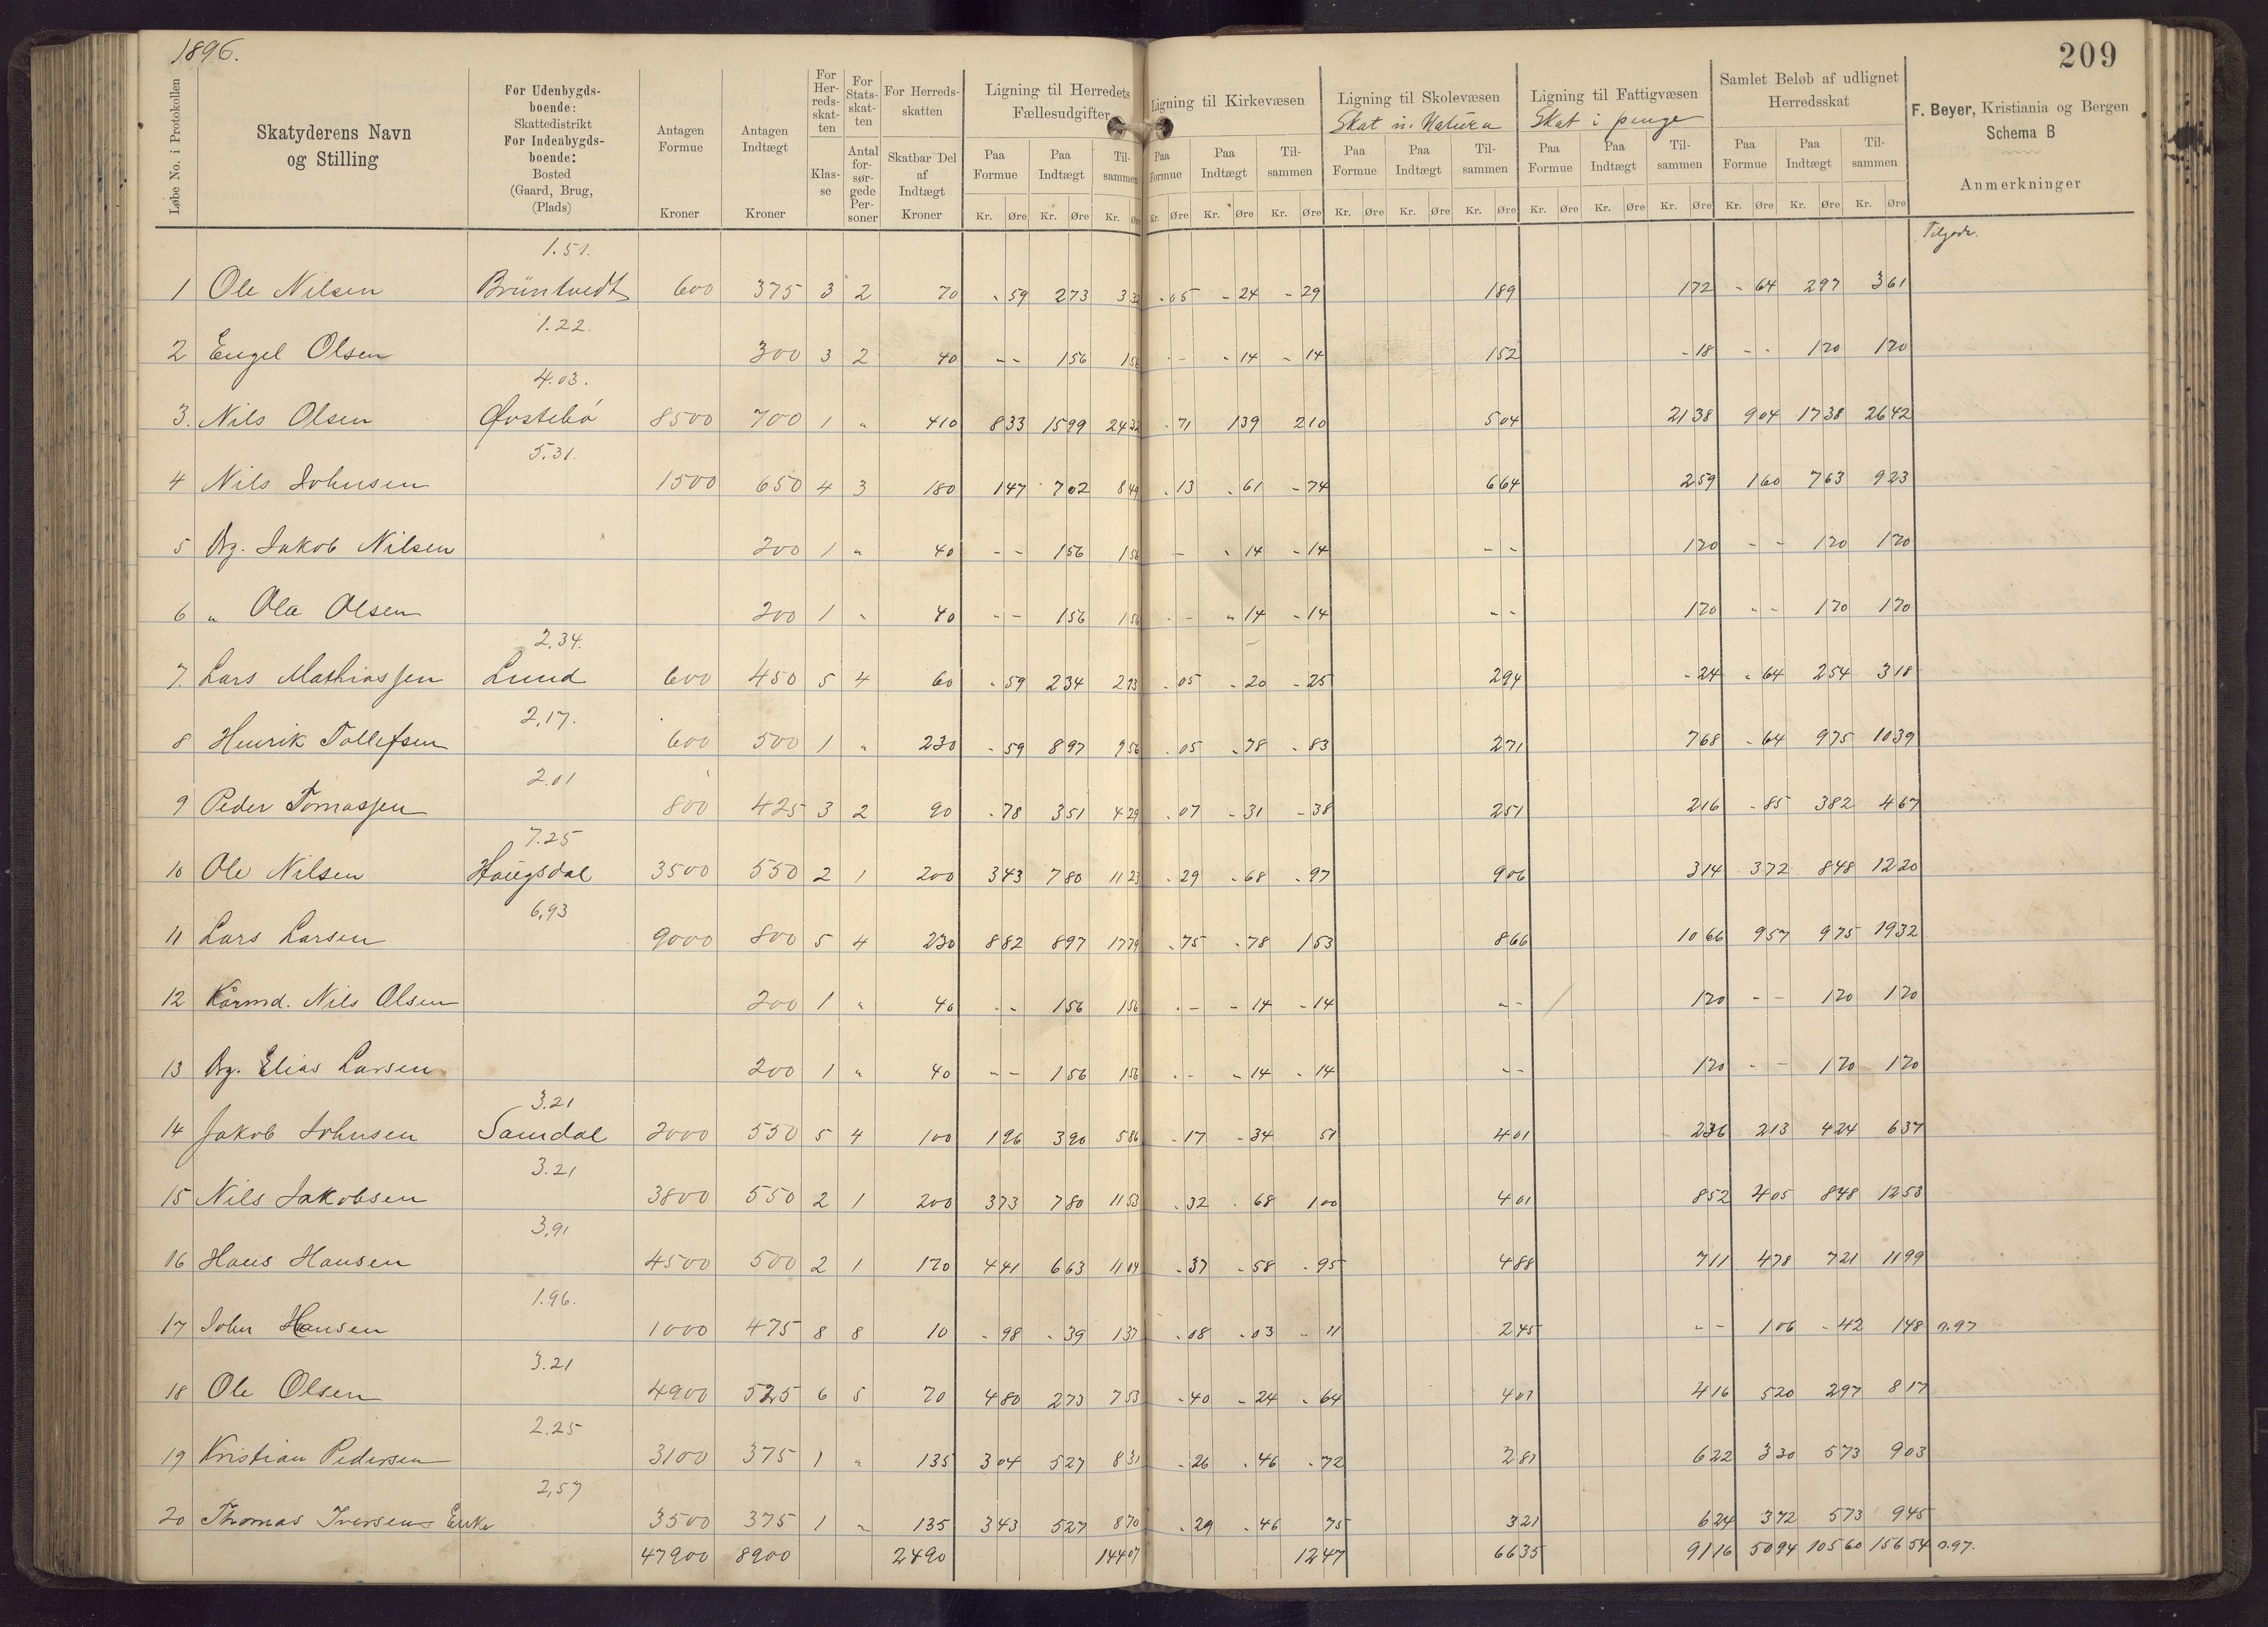 1896.
209
Løbe No. i Protokollen
Skatyderens Navn og Stilling
For Udenbygds-boende: Skattedistrikt For Indenbygds-boende: Bosted (Gaard, Brug, (Plads)
Antagen Formue Kroner
Antagen Indtægt Kroner
For Her-reds-skat-ten Klas-se
For Stats-skat-ten Antal for-sør-gede Per-soner
For Herreds-skatten Skatbar Del af Indtægt Kroner
Ligning til Herredets Fællesudgifter
Paa Formue Paa Indtægt Til-sammen
Kr. Øre Kr. Øre Kr. Øre
Ligning til Kirkevæsen
Paa Formue Paa Indtægt Til-sammen
Kr. Øre Kr. Øre Kr. Øre
Ligning til Skolevæsen
Skat in. Natura
Paa Formue Paa Indtægt Til-sammen
Kr. Øre Kr. Øre Kr. Øre
Ligning til Fattigvæsen
Skat i penge
Paa Formue Paa Indtægt Til-sammen
Kr. Øre Kr. Øre Kr. Øre
Samlet Beløb af udlignet Herredsskat
Paa Formue Paa Indtægt Til-sammen
Kr. Øre Kr. Øre Kr. Øre
F. Beyer, Kristiania og Bergen
Schema B
Anmerkninger
Tilgode.
1.51.
1 Ole Nilsen Brüntvedt 600 375 3 2 70 - 59 273 332 - 05 - 24 - 29 189 172 - 64 297 361
1.22.
2 Engel Olsen 300 3 2 40 - - 156 156 - - - 14 - 14 152 - 18 - - 170 170
4.03.
3. Nils Olsen Øvstebö 8500 700 1 " 410 833 1599 2432 - 71 139 210 504 2138 904 1738 2642
5.31.
4 Nils Johnsen 1500 650 4 3 180 147 702 849 - 13 - 61 - 74 664 259 160 763 923
5 Ug. Jakob Nilsen 200 1 " 40 - - 156 156 - - 14 - 14 - - 170 - - 170 170
6 " Ola Olsen 200 1 " 40 - - 156 156 - - - 14 - 14 - - 170 - - 170 170
2,34.
7. Lars Mathiassen Lund 600 450 5 4 60 - 59 234 293 - 05 - 20 - 25 294 - 24 - 64 254 318
2,17.
8 Henrik Tollefsen 600 500 1 " 230 - 59 897 956 - 05 - 78 - 83 271 768 - 64 975 1039
2.01
9 Peder Tomassen 800 425 3 2 90 - 78 351 429 - 07 - 31 - 38 251 216 - 85 382 467
7.25
10 Ole Nilsen Haugsdal 3500 550 2 1 200 343 780 1123 - 29 - 68 - 97 906 314 372 848 1220
6,93
11 Lars Larsen 9000 800 5 4 230 882 897 1779 - 75 - 78 153 866 1066 957 975 1932
12 Kårmd. Nils Olsen 200 1 " 40 - - 156 156 - - - 14 - 14 - - 170 - - 170 170
13 Ug. Elias Larsen 200 1 " 40 - - 156 156 - - - 14 - 14 - - 170 - - 170 170
3.21
14 Jakob Johnsen Samdal 2000 550 5 4 100 196 390 586 - 17 - 34 51 401 236 213 424 637
3.21
15 Nils Jakobsen 3800 550 2 1 200 373 780 1153 - 32 - 68 100 401 852 405 848 1253
3,91
16 Hans Hansen 4500 500 2 1 170 441 663 1104 - 37 - 58 - 95 488 711 478 721 1199
1.96.
17 John Hansen 1000 475 8 8 10 - 98 - 39 137 - 08 - 03 - 11 245 - - 106 - 42 148 0.97
3.21
18 Ole Olsen 4900 525 6 5 70 480 273 753 - 40 - 24 - 64 401 416 520 297 817
2.25
19 Kristian Pedersen 3100 375 1 " 135 304 527 831 - 26 - 46 - 72 281 622 330 573 903
2,57
20 Thomas Iversens Enke 3500 375 1 " 135 343 527 870 - 29 - 46 75 321 624 372 573 945
47900 8900 2490 14407 1247 6635 9116 5094 10560 15654 0.97.